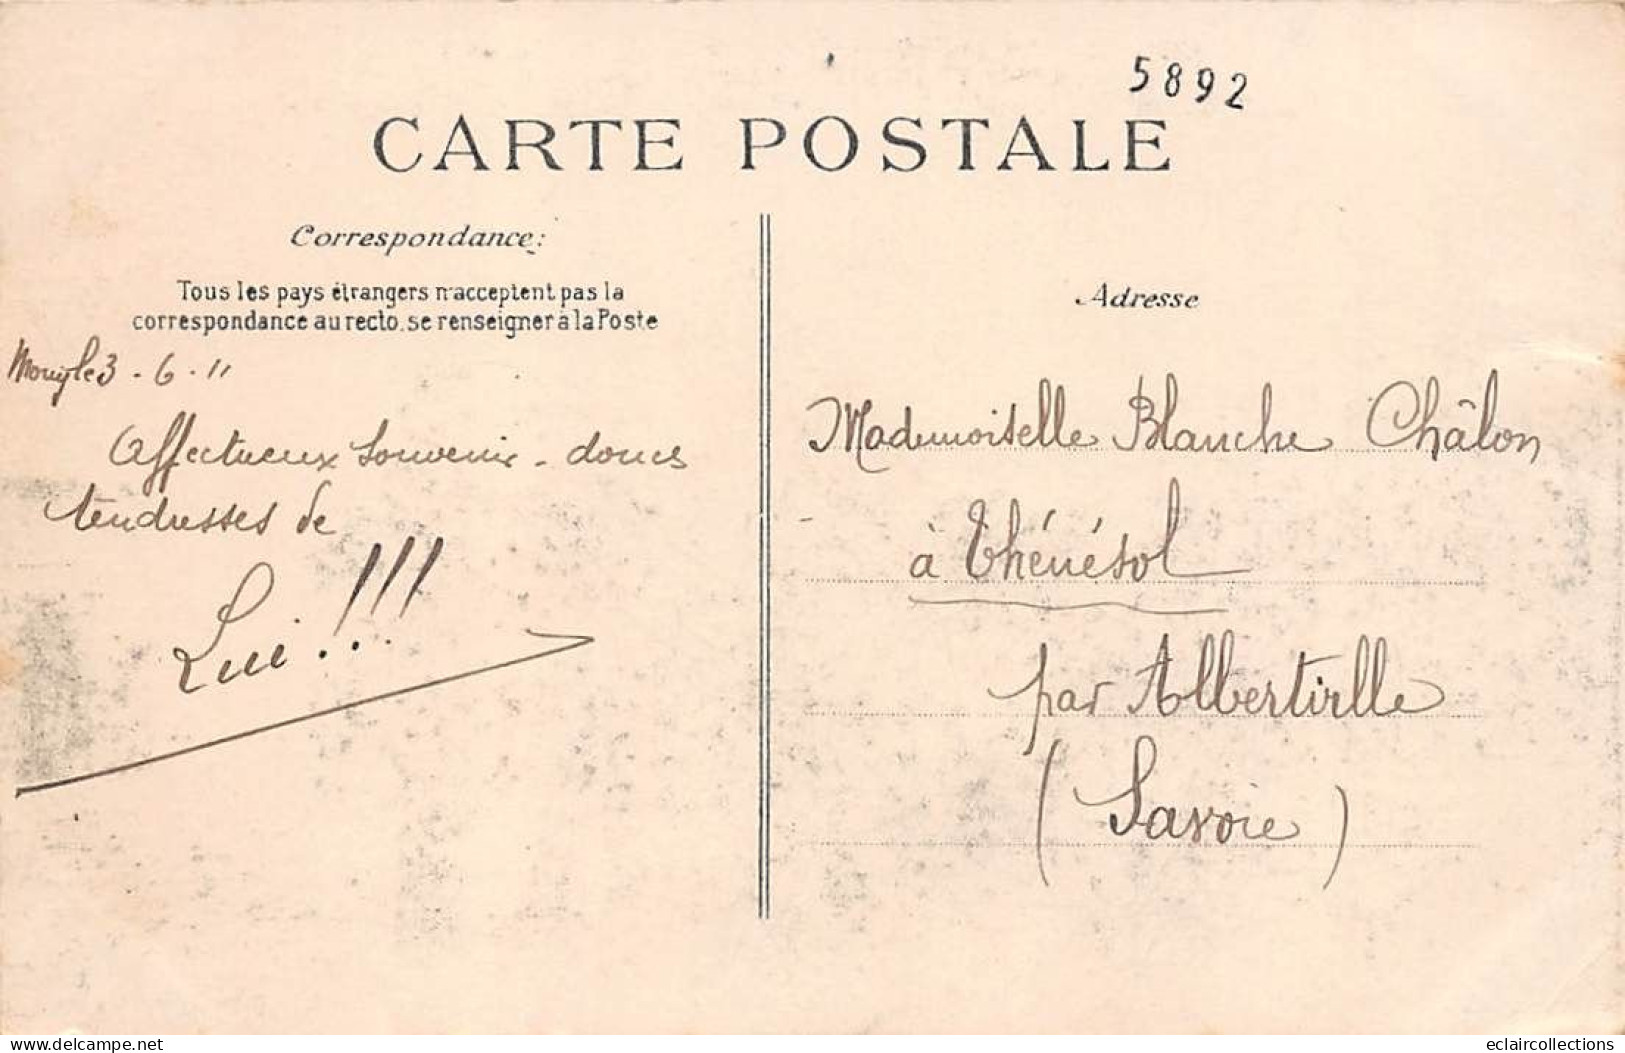 5892
CARTE POSTALE
Correspondance:
Tous les pays étrangers n'acceptent pas la
correspondance au recto. se renseigner à la Poste
le 3 - 6 - 11
Affectueux souvenir - douces
tendresses de
Lui !!!
Adresse
Mademoiselle Blanche Châlon
à Thénésol
par Albertville
(Savoie)
www.delcampe.net
eclaircollections